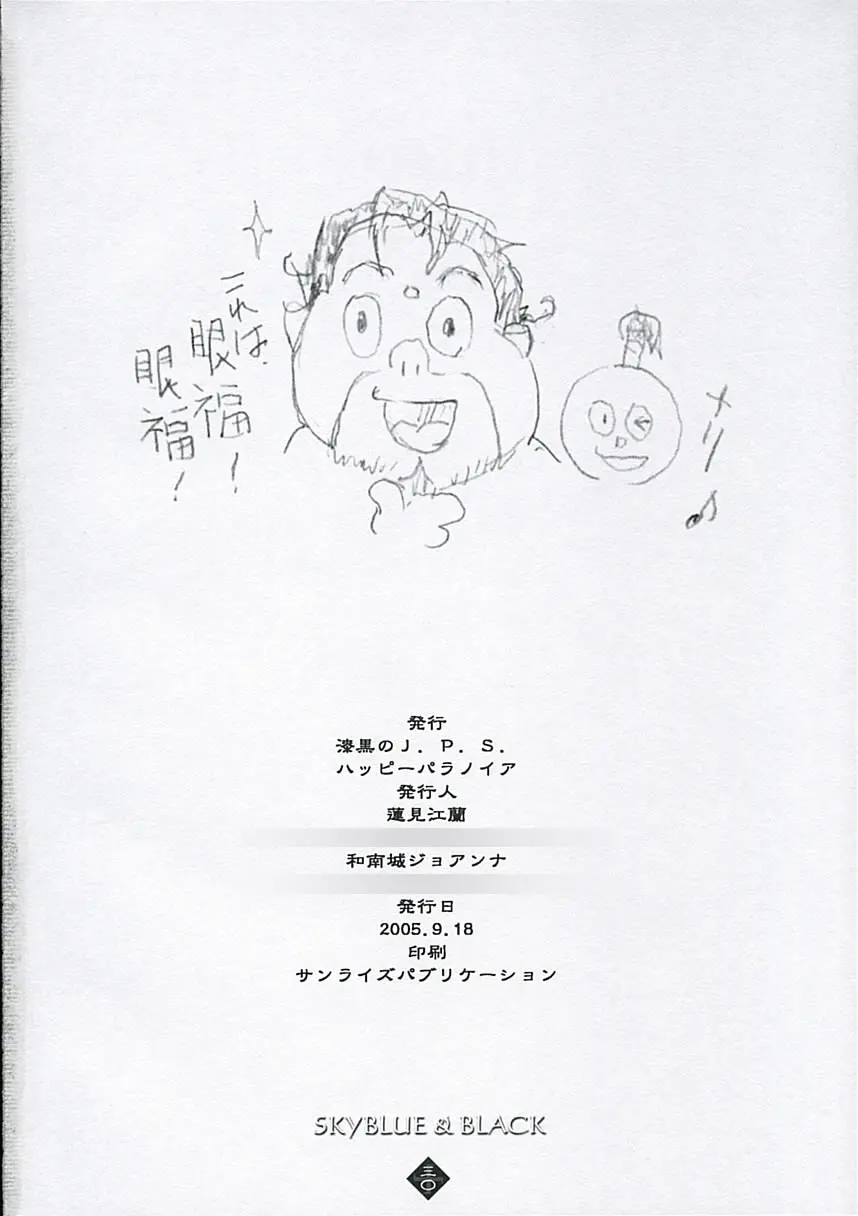 これは、
眼福！
眼福！
メリー♪
発行
漆黒のＪ．Ｐ．Ｓ．
ハッピーパラノイア
発行人
蓮見江蘭
和南城ジョアンナ
発行日
2005.9.18
印刷
サンライズパブリケーション
SKYBLUE & BLACK
三〇